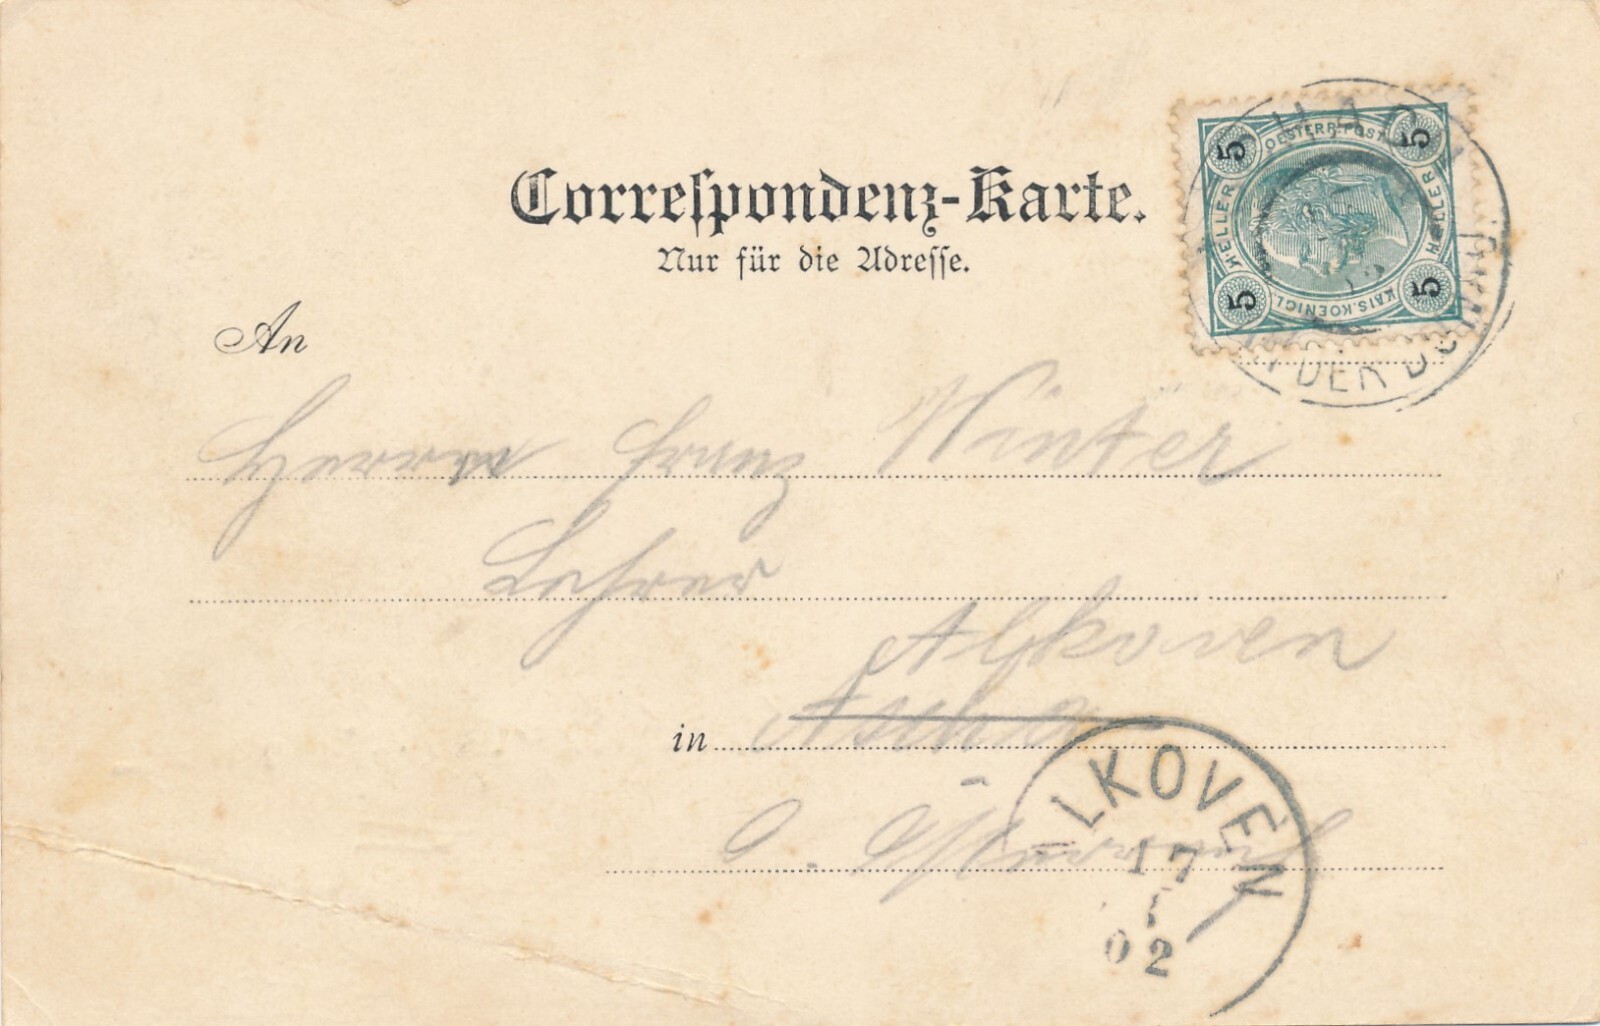 Correspondenz-Karte.
Nur für die Adresse.
5 5 5 5
OESTERR. POST
KAIS. KOENIGL.
HELLER HELLER
AN DER DONAU
An
Herrn Franz Winter
Lehrer
Alkoven
in Ascha
O. Österreich
ALKOVEN
17
02